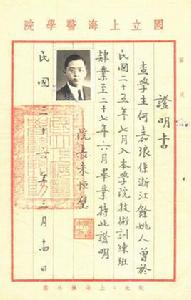 國立上海醫學院
證明書
查學生何嘉琅係浙江餘姚人曾於
民國二十五年七月入本學院技術訓練班
肄業至二十七年六月畢業特此證明
院長朱恒璧
民國二十六年三月十四日